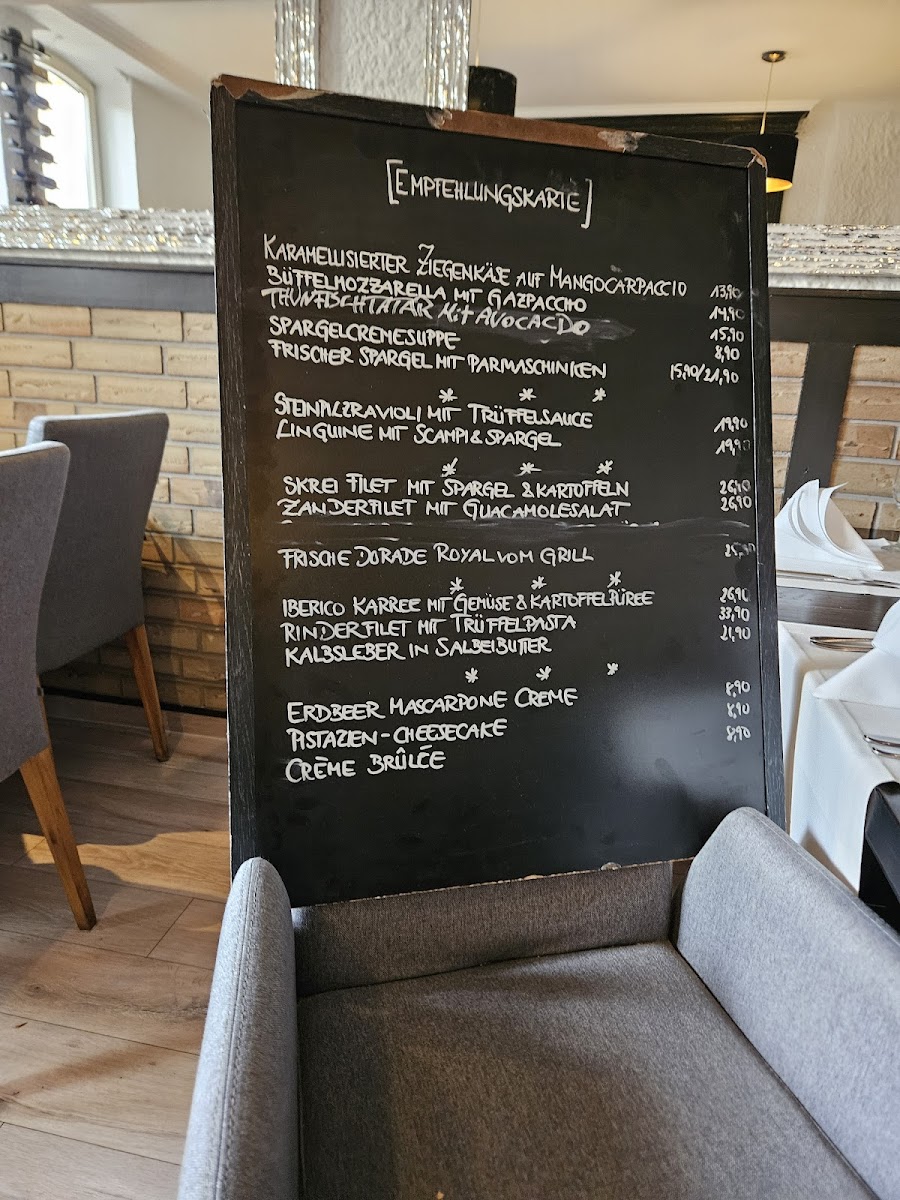 [EMPFEHLUNGSKARTE]
KARAMELLISIERTER ZIEGENKÄSE AUF MANGOCARPACCIO 13,90
BÜFFELMOZZARELLA MIT GAZPACCHO 14,90
THUNFISCHTATAR MIT AVOCACDO 15,90
SPARGELCREMESUPPE 8,90
FRISCHER SPARGEL MIT PARMASCHINKEN 15,90/21,90
* * *
STEINPILZRAVIOLI MIT TRÜFFELSAUCE 19,90
LINGUINE MIT SCAMPI & SPARGEL 19,90
* * *
SKREI FILET MIT SPARGEL & KARTOFFELN 26,90
ZANDERFILET MIT GUACAMOLESALAT 26,90
FRISCHE DORADE ROYAL VOM GRILL
* * *
IBERICO KARREE MIT GEMÜSE & KARTOFFELPÜREE 26,90
RINDERFILET MIT TRÜFFELPASTA 33,90
KALBSLEBER IN SALBEIBUTTER 21,90
* * *
ERDBEER MASCARPONE CREME 8,90
PISTAZIEN-CHEESECAKE 8,90
CRÈME BRÛLÉE 8,90